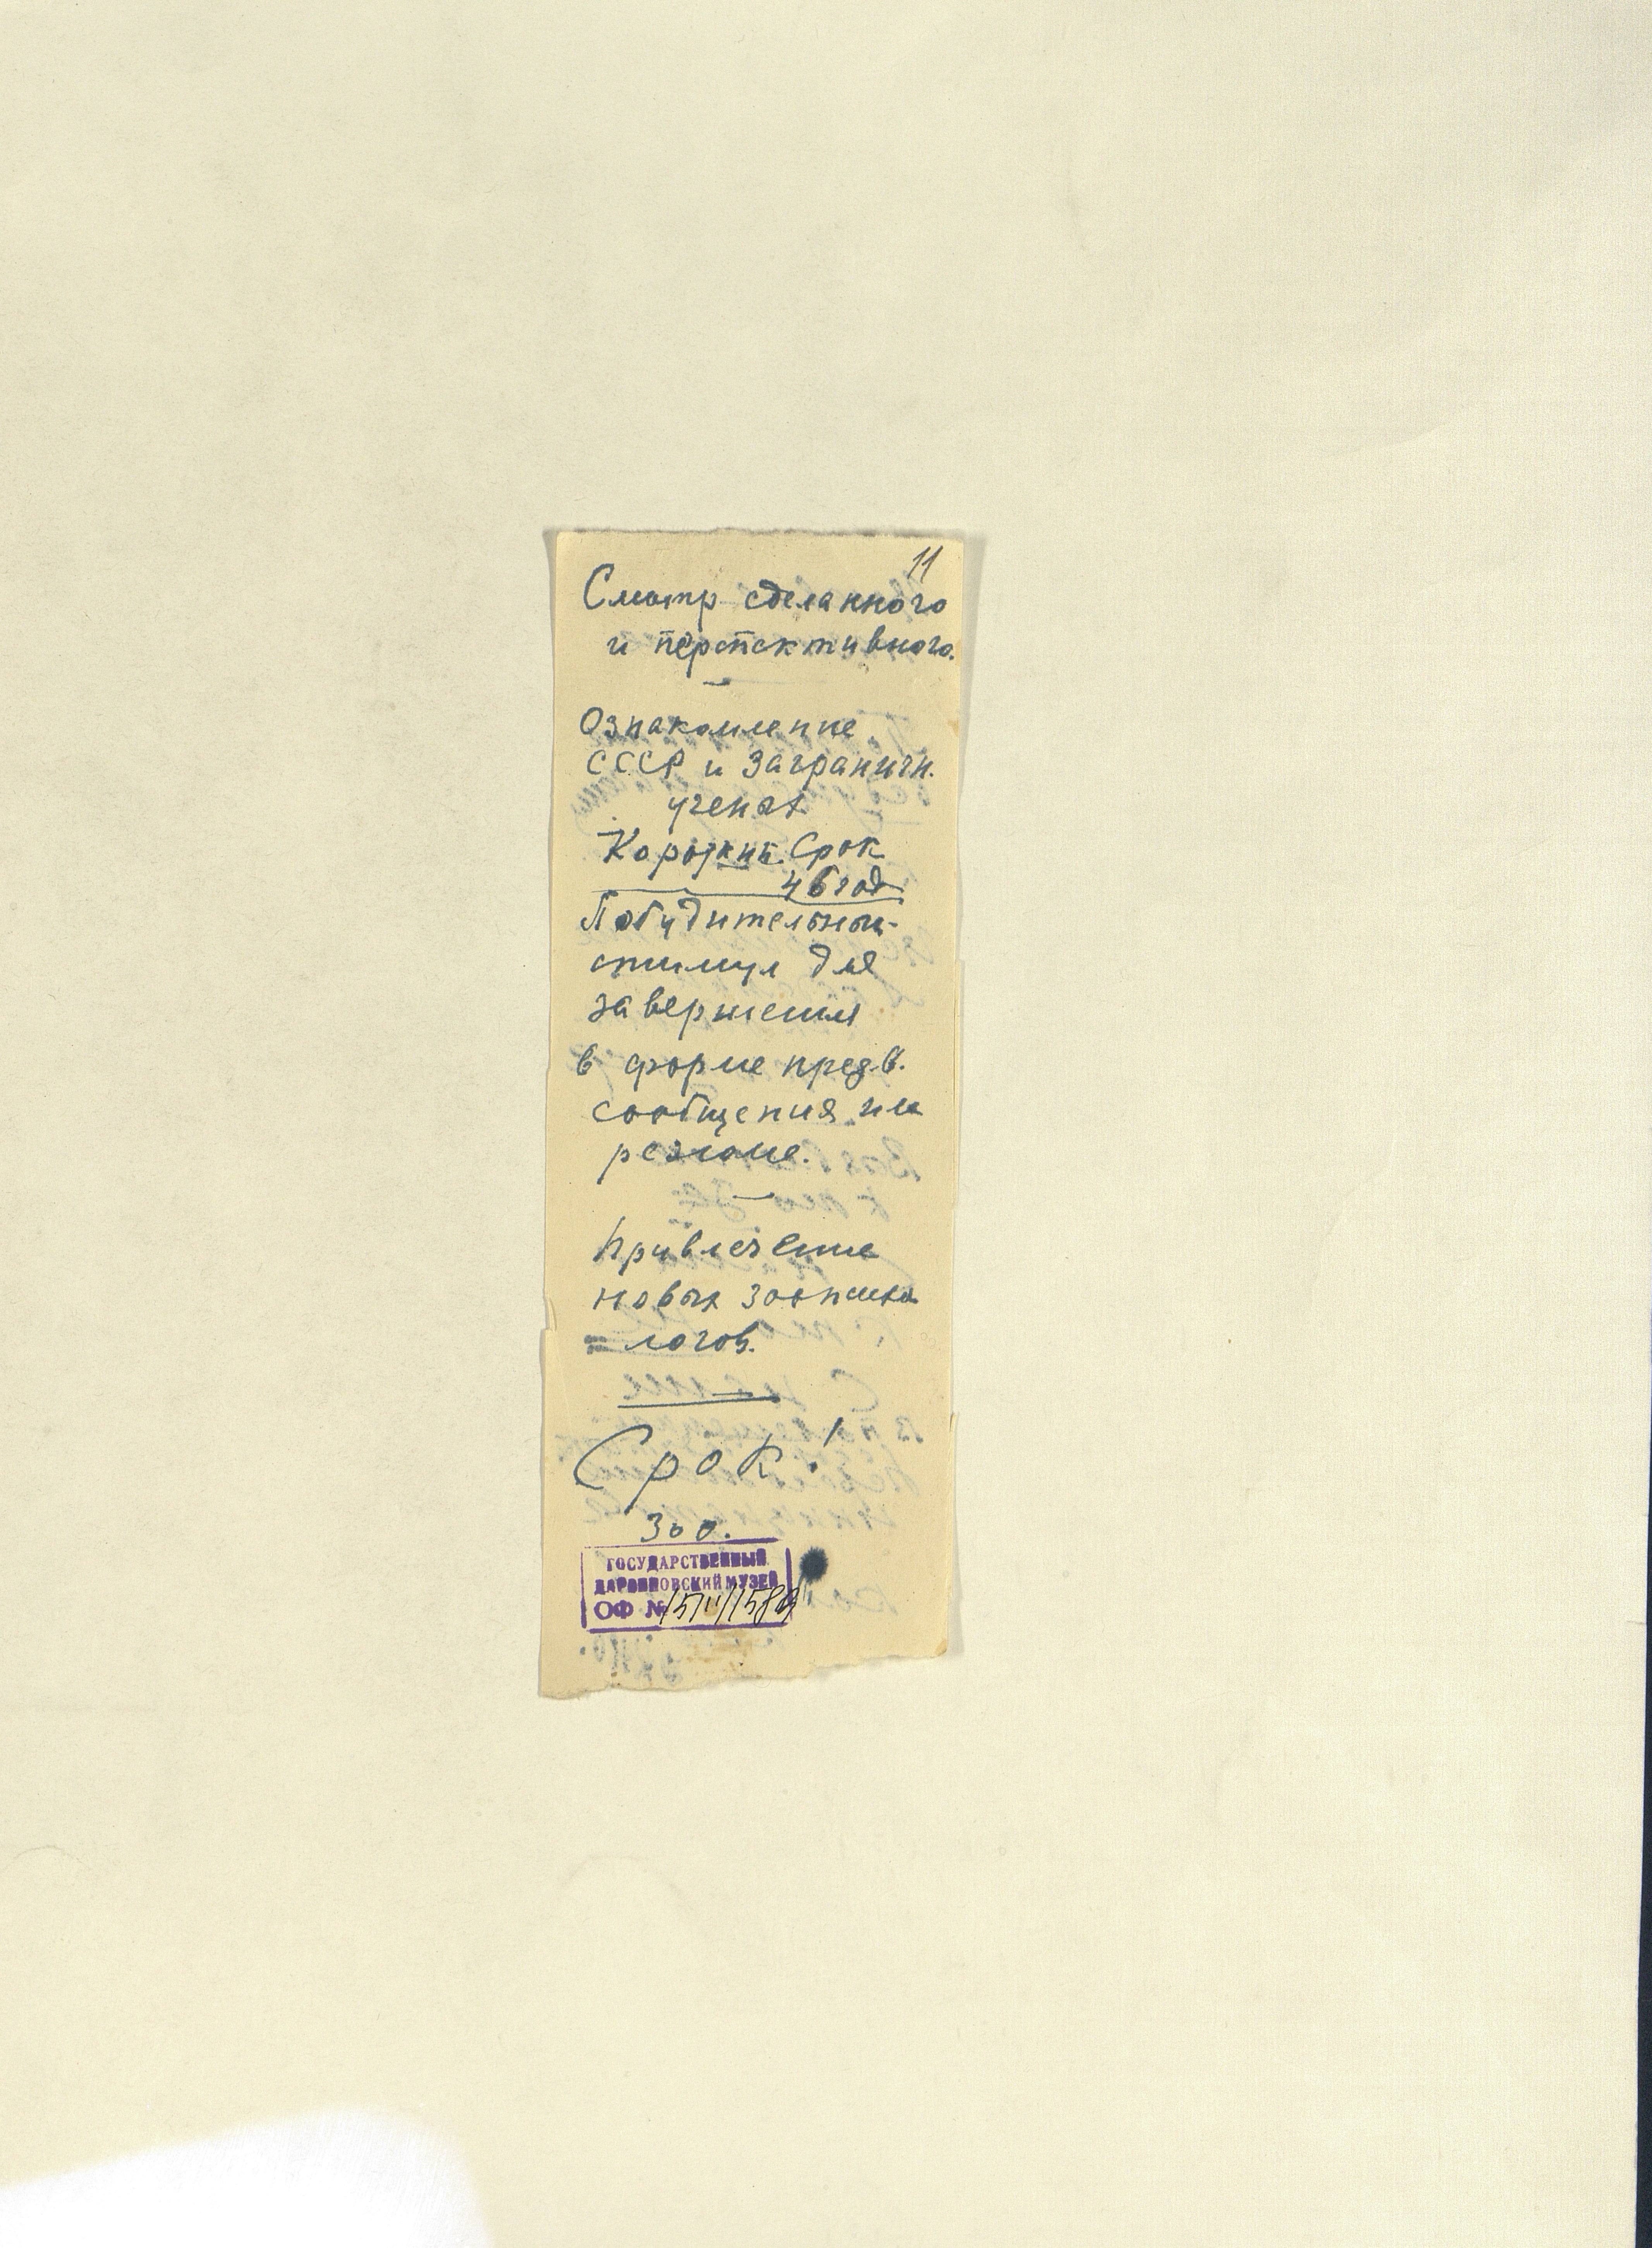 11
Смотр сделанного
и перспективного.
Ознакомление
СССР и заграничн.
ученых
Короткий срок
46 год
Побудительный
стимул для
завершения
в форме предв.
сообщения или
резюме.
Привлечение
новых зоопсихо
= логов.
Срок!
300.
ГОСУДАРСТВЕННЫЙ
ДАРВИНОВСКИЙ МУЗЕЙ
ОФ №